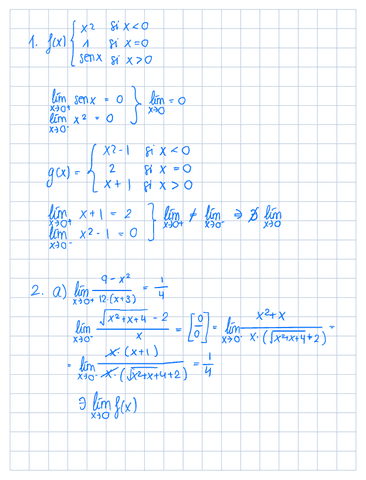 1. f(x) { x² si x < 0
1 si x = 0
sen x si x > 0
lím x→0⁺ sen x = 0 } lím x→0 = 0
lím x→0⁻ x² = 0
g(x) = { x² - 1 si x < 0
2 si x = 0
x + 1 si x > 0
lím x→0⁺ x + 1 = 2 } lím x→0⁺ ≠ lím x→0⁻ ⇒ ∄ lím x→0
lím x→0⁻ x² - 1 = 0
2. a) lím x→0⁺ (9 - x²)/(12·(x+3)) = 1/4
lím x→0⁻ (√(x²+x+4) - 2)/x = [0/0] = lím x→0⁻ (x² + x)/(x·(√(x²+x+4)+2)) =
= lím x→0⁻ (x·(x+1))/(x·(√(x²+x+4)+2)) = 1/4
∃ lím x→0 f(x)